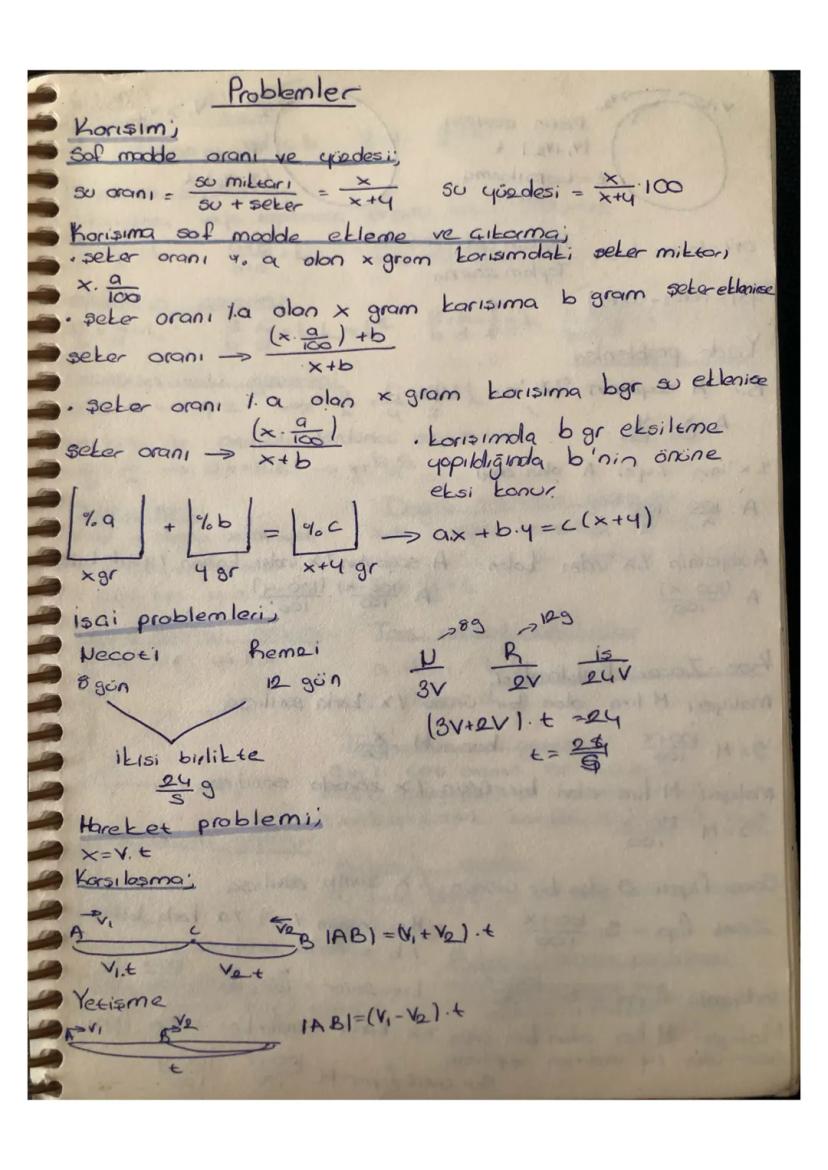 Problemler
Karışım;
Saf madde oranı ve yüzdesi;
su oranı = su miktarı / su + şeker = x / x+y   su yüzdesi = x / x+y · 100
Karışıma saf madde ekleme ve çıkarma;
• şeker oranı % a olan x gram karışımdaki şeker miktarı
x. a/100
• şeker oranı %a olan x gram karışıma b gram şeker eklenirse
şeker oranı → (x. a/100) + b / x+b
• şeker oranı %a olan x gram karışıma bgr su eklenirse
şeker oranı → (x. a/100) / x+b
• karışımda b gr eksiltme
yapıldığında b'nin önüne
eksi konur.
%a + %b = %c → a.x + b.y = c(x+y)
x gr   y gr   x+y gr
işçi problemleri;
Necati   Remzi
8 gün   12 gün
ikisi birlikte
24/5 g
→8g   →12g
N   R   iş
3V   2V   24V
(3V+2V).t = 24
t = 24/5
Hareket problemi;
x=V.t
Karşılaşma;
A →V₁   C   ←V₂ B   |AB| = (V₁+V₂).t
V₁.t   V₂.t
Yetişme
A →V₁   B →V₂   |AB|=(V₁-V₂).t
t